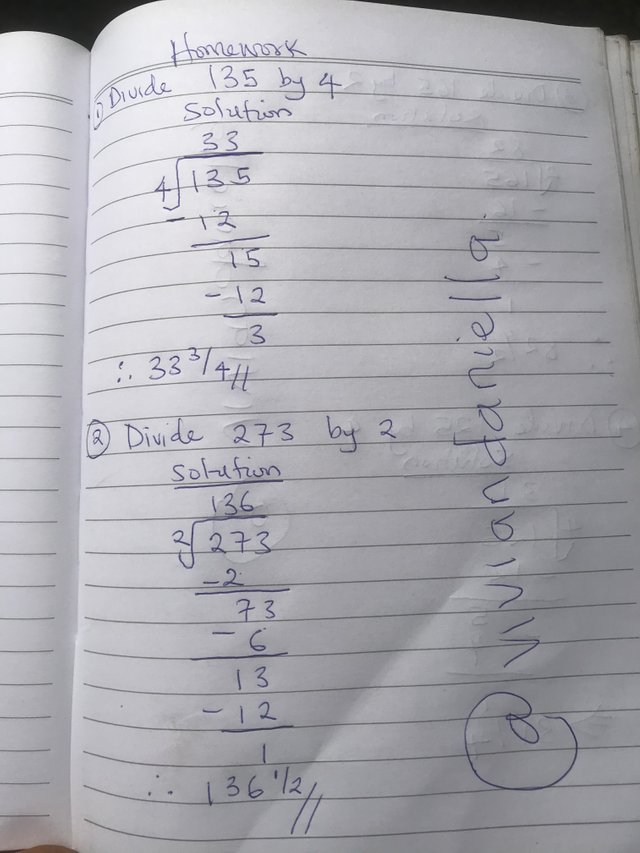 Homework
① Divide 135 by 4
Solution
33
4√135
-12
15
-12
3
∴ 33 3/4//
② Divide 273 by 2
Solution
136
2√273
-2
73
-6
13
-12
1
∴ 136 1/2//
@viviandaniella.